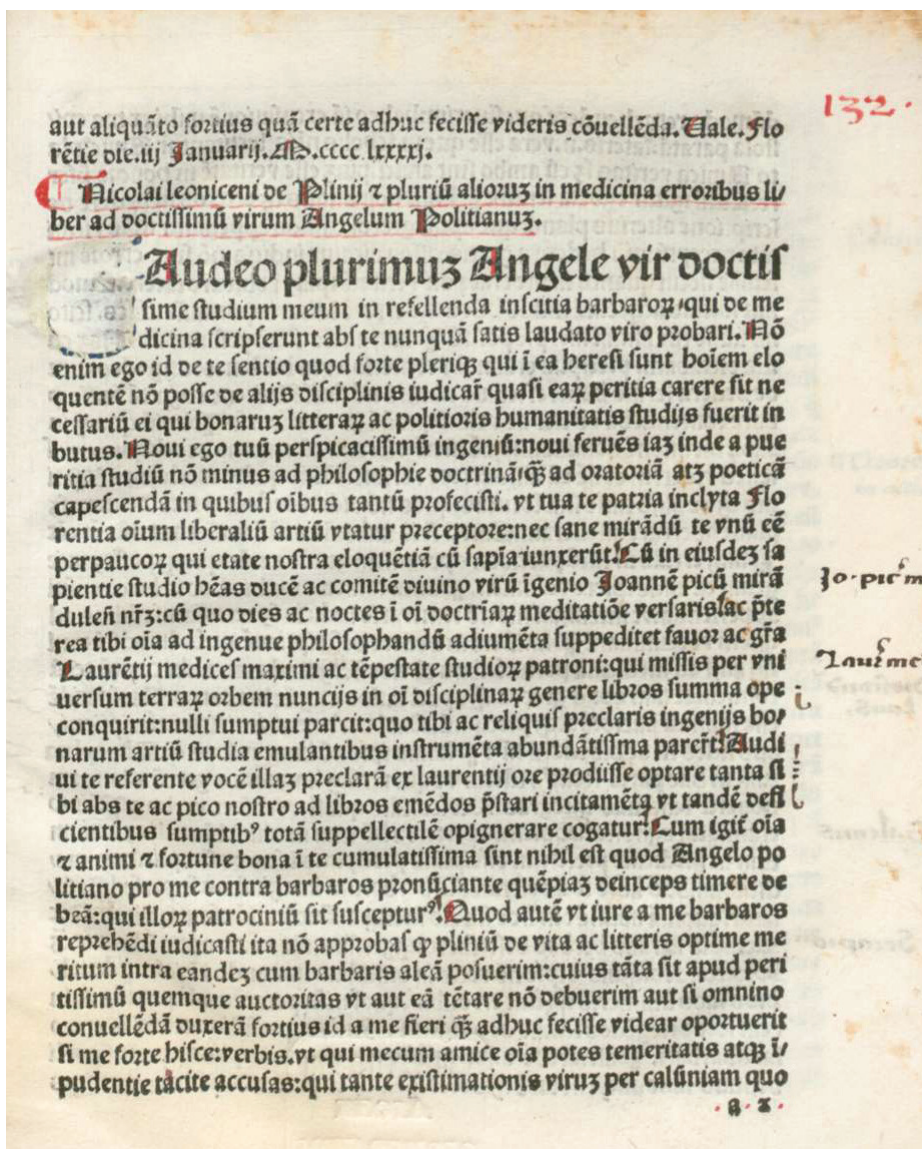 132.
aut aliquãto fortius quã certe adhuc fecisse videris cõuellẽda. Vale. Flo
rẽtie die.iij Januarij.M.cccc lxxxxj.
¶ Nicolai leoniceni de Plinij ⁊ pluriũ alioruꝫ in medicina erroribus li/
ber ad doctissimũ virum Angelum Politianuꝫ.
Audeo plurimuꝫ Angele vir doctis
sime studium meum in refellenda inscitia barbaroꝝ qui de me
dicina scripserunt abs te nunquã satis laudato viro probari. Nõ
enim ego id de te sentio quod forte pleriqꝫ qui ĩ ea heresi sunt hoĩem elo
quentẽ nõ posse de alijs disciplinis iudicar̃ quasi eaꝝ peritia carere sit ne
cessariũ ei qui bonaruꝫ litteraꝝ ac politioris humanitatis studijs fuerit im
butus. Noui ego tuũ perspicacissimũ ingeniũ:noui feruẽs iaꝫ inde a pue
ritia studiũ nõ minus ad philosophie doctrinã qꝫ̃ ad oratoriã atꝫ poeticã
capescendã in quibus oĩbus tantũ profecisti. vt tua te patria inclyta Flo
rentia oĩum liberaliũ artiũ vtatur preceptore:nec sane mirãdũ te vnũ eẽ
perpaucoꝝ qui etate nostra eloquẽtiã cũ sapĩa iunxerũt! Cũ in eiusdeꝫ sa
pientie studio hẽas ducẽ ac comitẽ diuino virũ ĩgenio Joannẽ picũ mirã
duleñ nr̃ꝫ:cũ quo dies ac noctes ĩ oĩ doctrĩaꝝ meditatiõe versaris! ac p̃te
rea tibi oĩa ad ingenue philosophandũ adiumẽta suppeditet fauor ac gr̃a
Laurẽtij medices maximi ac tẽpestate studioꝝ patroni:qui missis per vni
uersum terraꝝ orbem nuncijs in oĩ disciplinaꝝ genere libros summa ope
conquirit:nulli sumptui parcit:quo tibi ac reliquis preclaris ingenijs bo/
narum artiũ studia emulantibus instrumẽta abundãtissma parer̃t! Audi
ui te referente vocẽ illaꝫ preclarã ex laurentij ore prodijsse optare tanta si
bi abs te ac pico nostro ad libros emẽdos p̃stari incitamẽta vt tandẽ defi
cientibus sumptibꝰ totã suppellectilẽ opignerare cogatur! Cum igit̃ oĩa
⁊ animi ⁊ fortune bona ĩ te cumulatissima sint nihil est quod Angelo po
litiano pro me contra barbaros pronũciante quẽpiaꝫ deinceps timere de
beã:qui illoꝝ patrociniũ sit susceptur⁹! Quod autẽ vt iure a me barbaros
reprehẽdi iudicasti ita nõ approbas ꝙ pliniũ de vita ac litteris optime me
ritum intra eandeꝫ cum barbaris aleã posuerim:cuius tãta sit apud peri
tissimũ quemque auctoritas vt aut eã tẽtare nõ debuerim aut si omnino
conuellẽdã duxerã fortius id a me fieri qꝫ̃ adhuc fecisse videar oportuerit
si me forte hisce:verbis.vt qui mecum amice oĩa potes temeritatis atqꝫ ĩ/
pudentie tacite accusas:qui tante existimationis viruꝫ per calũniam quo
Jo. pic̃ m
Laur̃ me